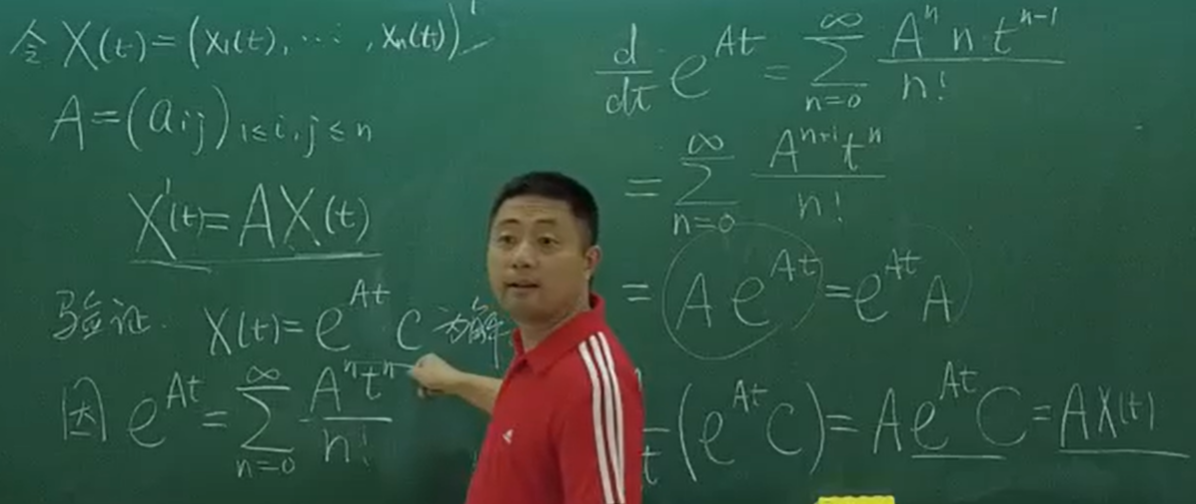 令 X(t)=(x₁(t), ⋯, xₙ(t))'
A=(aᵢⱼ)₁≤i,j≤n
X'(t)=AX(t)
验证. X(t)=e^{At} C 为解
因 e^{At}=∑_{n=0}^{∞} Aⁿtⁿ/n!
d/dt e^{At}=∑_{n=0}^{∞} Aⁿ n·t^{n-1}/n!
=∑_{n=0}^{∞} A^{n+1}tⁿ/n!
=Ae^{At}=e^{At}A
(e^{At}C)=Ae^{At}C=AX(t)